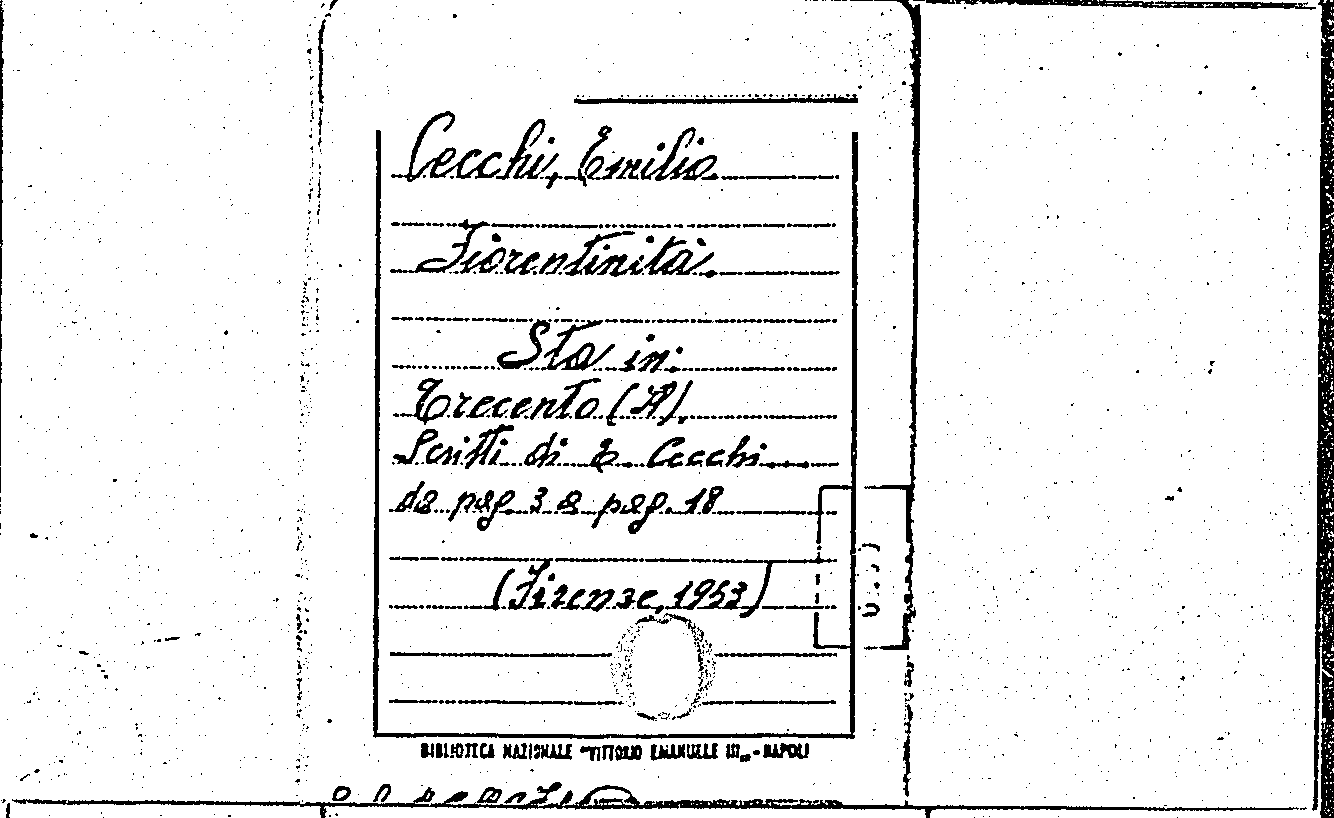 Cecchi, Emilio
Fiorentinità.
Sta in:
Trecento (Il).
Scritti di E. Cecchi....
da pag. 3 a pag. 18
(Firenze, 1953)
BIBLIOTECA NAZIONALE "VITTORIO EMANUELE III„ - NAPOLI